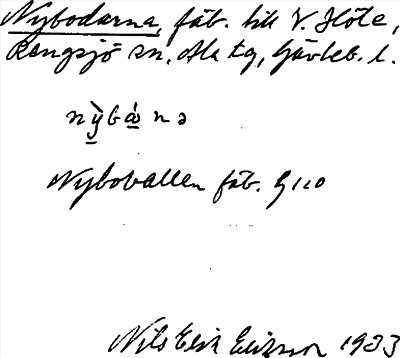 Nybodarna, fäb. till V. Höle,
Rengsjö sn, Ala tg, Gävleb. l.
nỳbὼnə
Nybovallen fäb. G 110
Nils Erik Eriksson 1933